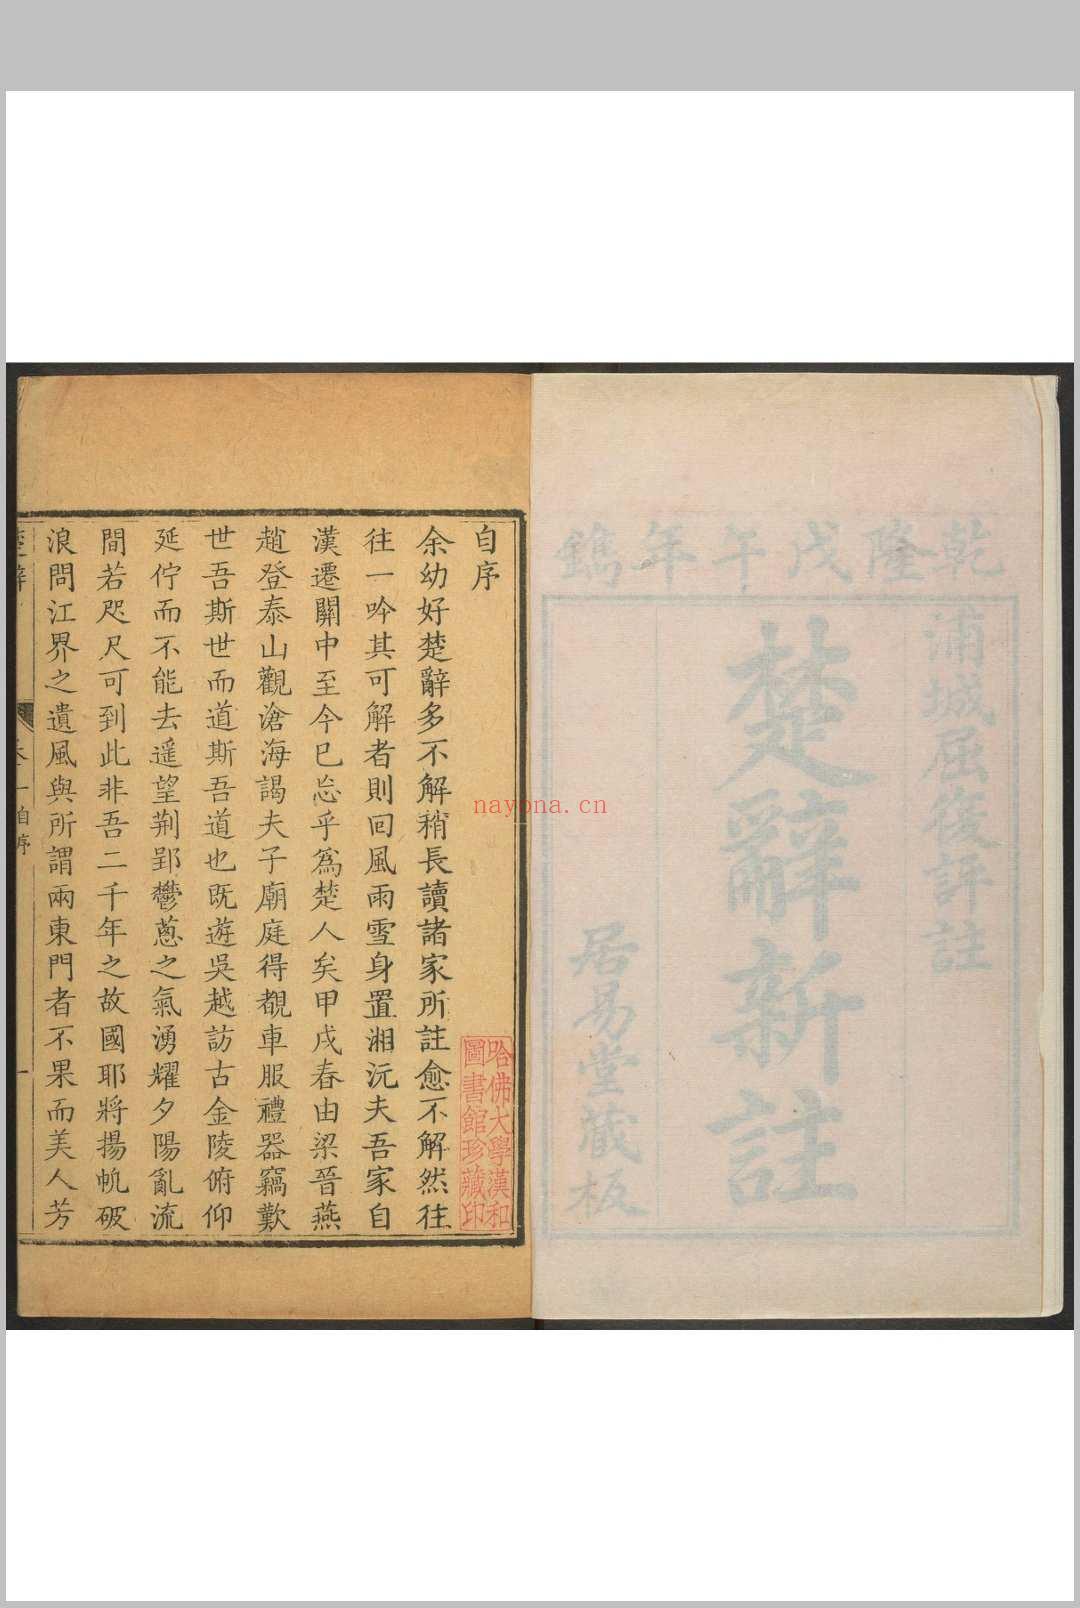 乾隆戊午年鐫
浦城屈復評註
楚辭新註
居易堂藏板
自序
余幼好楚辭多不解稍長讀諸家所註愈不解然往
往一吟其可解者則回風雨雪身置湘沅夫吾家自
漢遷關中至今已忘乎爲楚人矣甲戌春由梁晉燕
趙登泰山觀滄海謁夫子廟庭得覩車服禮器竊歎
世吾斯世而道斯吾道也旣遊吳越訪古金陵俯仰
延佇而不能去遥望荆郢鬱蔥之氣湧耀夕陽亂流
間若咫尺可到此非吾二千年之故國耶將揚帆破
浪問江界之遺風與所謂兩東門者不果而美人芳
自序
一
哈佛大學漢和
圖書館珍藏印
nayona.cn